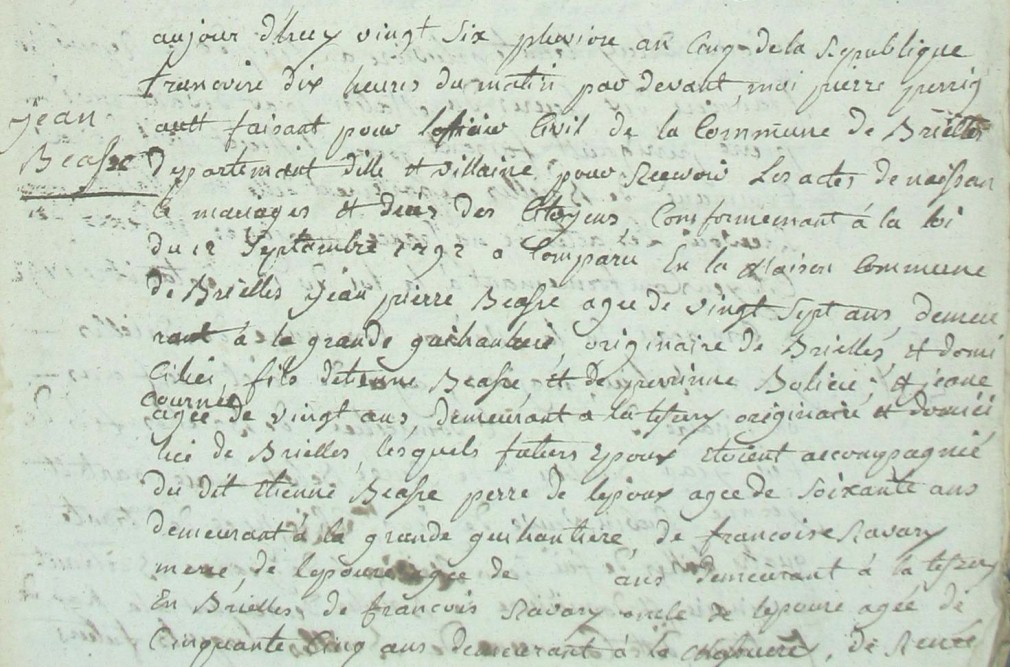 aujour d'huy vingt six pluviose an cinq de la Republique
francoise dix heures du matin par devant moi pierre perrig
ault faisant pour lofficier Civil de la Commune de Brielles
Jean
Beasse
Departement dille et villaine pour Recevoir Les actes de naissan
ce mariages et deces des Citoyens Conformement á la loi
du 12 Septembre 1792 a Comparu En la Maison Commune
de Brielles jean pierre Beasse agee de vingt Sept ans demeu
rant á la grande guichantiere, originaire de Brielles, et domi
cilié, fils detienne Beasse et de perrinne et jeane
cournee
agée de vingt ans, demeurant a la originaire et domici
liee de Brielles, lesquels futurs Epoux Etoient accompagnié
du dit Etienne Beasse perre de lepoux agee de Soixante ans
demeurant á la grande guichantiere, de francoise Ravary
mere, de lepouse agee de ans demeurant á la
En Brielles de francois Ravary oncle de lepouse agée de
Cinquante Cinq ans demeurant á la de René